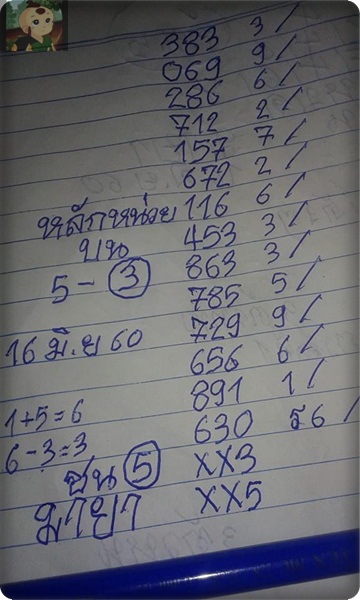 383 3/
069 9/
286 6/
712 2/
157 7/
672 2/
หลักหน่วย 116 6/
บน 453 3/
5-3 863 3/
785 5/
16 มิ.ย 60 729 9/
656 6/
1+5=6 891 1/
6-3=3 630 ร6/
ชน 5 XX3
มายา XX5